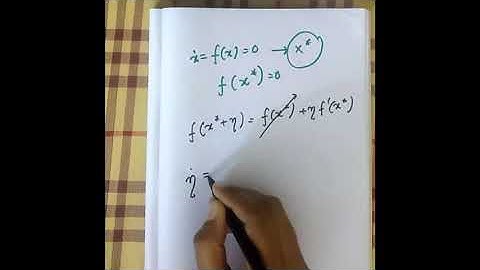 ẋ = f(x) = 0 → x*
f(x*) = 0
f(x* + η) = f(x*) + η f'(x*)
η̇ =